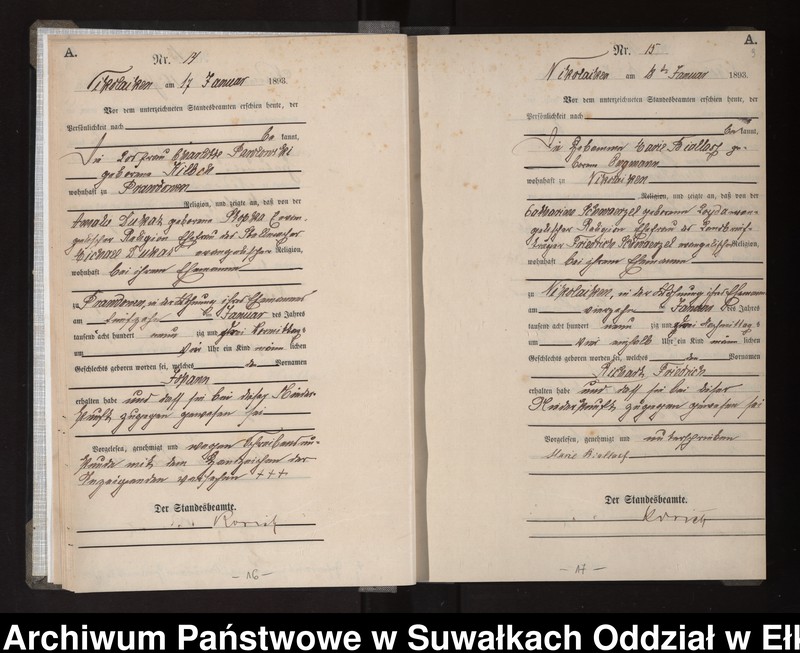 A.
Nr. 14
Nikolaiken am 17 Januar 1893.
Vor dem unterzeichneten Standesbeamten erschien heute, der
Persönlichkeit nach
be kannt,
Die Losfrau Charlotte
geborene
wohnhaft zu Prawdowen
Religion, und zeigte an, daß von der
Amalie Dukat geborene evan-
gelischer Religion Ehefrau des
Michael Dukat evangelischer Religion,
wohnhaft bei ihrem Ehemanne
zu Prawdowen, in der Wohnung ihres Ehemannes
am ten Januar des Jahres
tausend acht hundert neun zig und drei Vormittags
um vier Uhr ein Kind männ lichen
Geschlechts geboren worden sei, welches den Vornamen
Johann
erhalten habe und daß sie bei dieser Nieder-
kunft zugegen gewesen sei
Vorgelesen, genehmigt und wegen Schreibensun-
kunde mit dem Handzeichen der
Anzeigenden versehen +++
Der Standesbeamte.
- 16 -
A.
Nr. 15
Nikolaiken am ten Januar 1893.
Vor dem unterzeichneten Standesbeamten erschien heute, der
Persönlichkeit nach
be kannt,
Die Hebamme Marie ge-
borene
wohnhaft zu Nikolaiken
Religion, und zeigte an, daß von der
Catharine geborene evan-
gelischer Religion Ehefrau des
Friedrich evangelischer Religion,
wohnhaft bei ihrem Ehemanne
zu Nikolaiken, in der Wohnung ihres Ehemannes
am vierzehn ten Januar des Jahres
tausend acht hundert neun zig und drei Nachmittags
um vier einhalb Uhr ein Kind männ lichen
Geschlechts geboren worden sei, welches den Vornamen
Richard Friedrich
erhalten habe und daß sie bei dieser
Niederkunft zugegen gewesen sei
Vorgelesen, genehmigt und unterschrieben
Marie
Der Standesbeamte.
- 17 -
Archiwum Państwowe w Suwałkach Oddział w Ełk